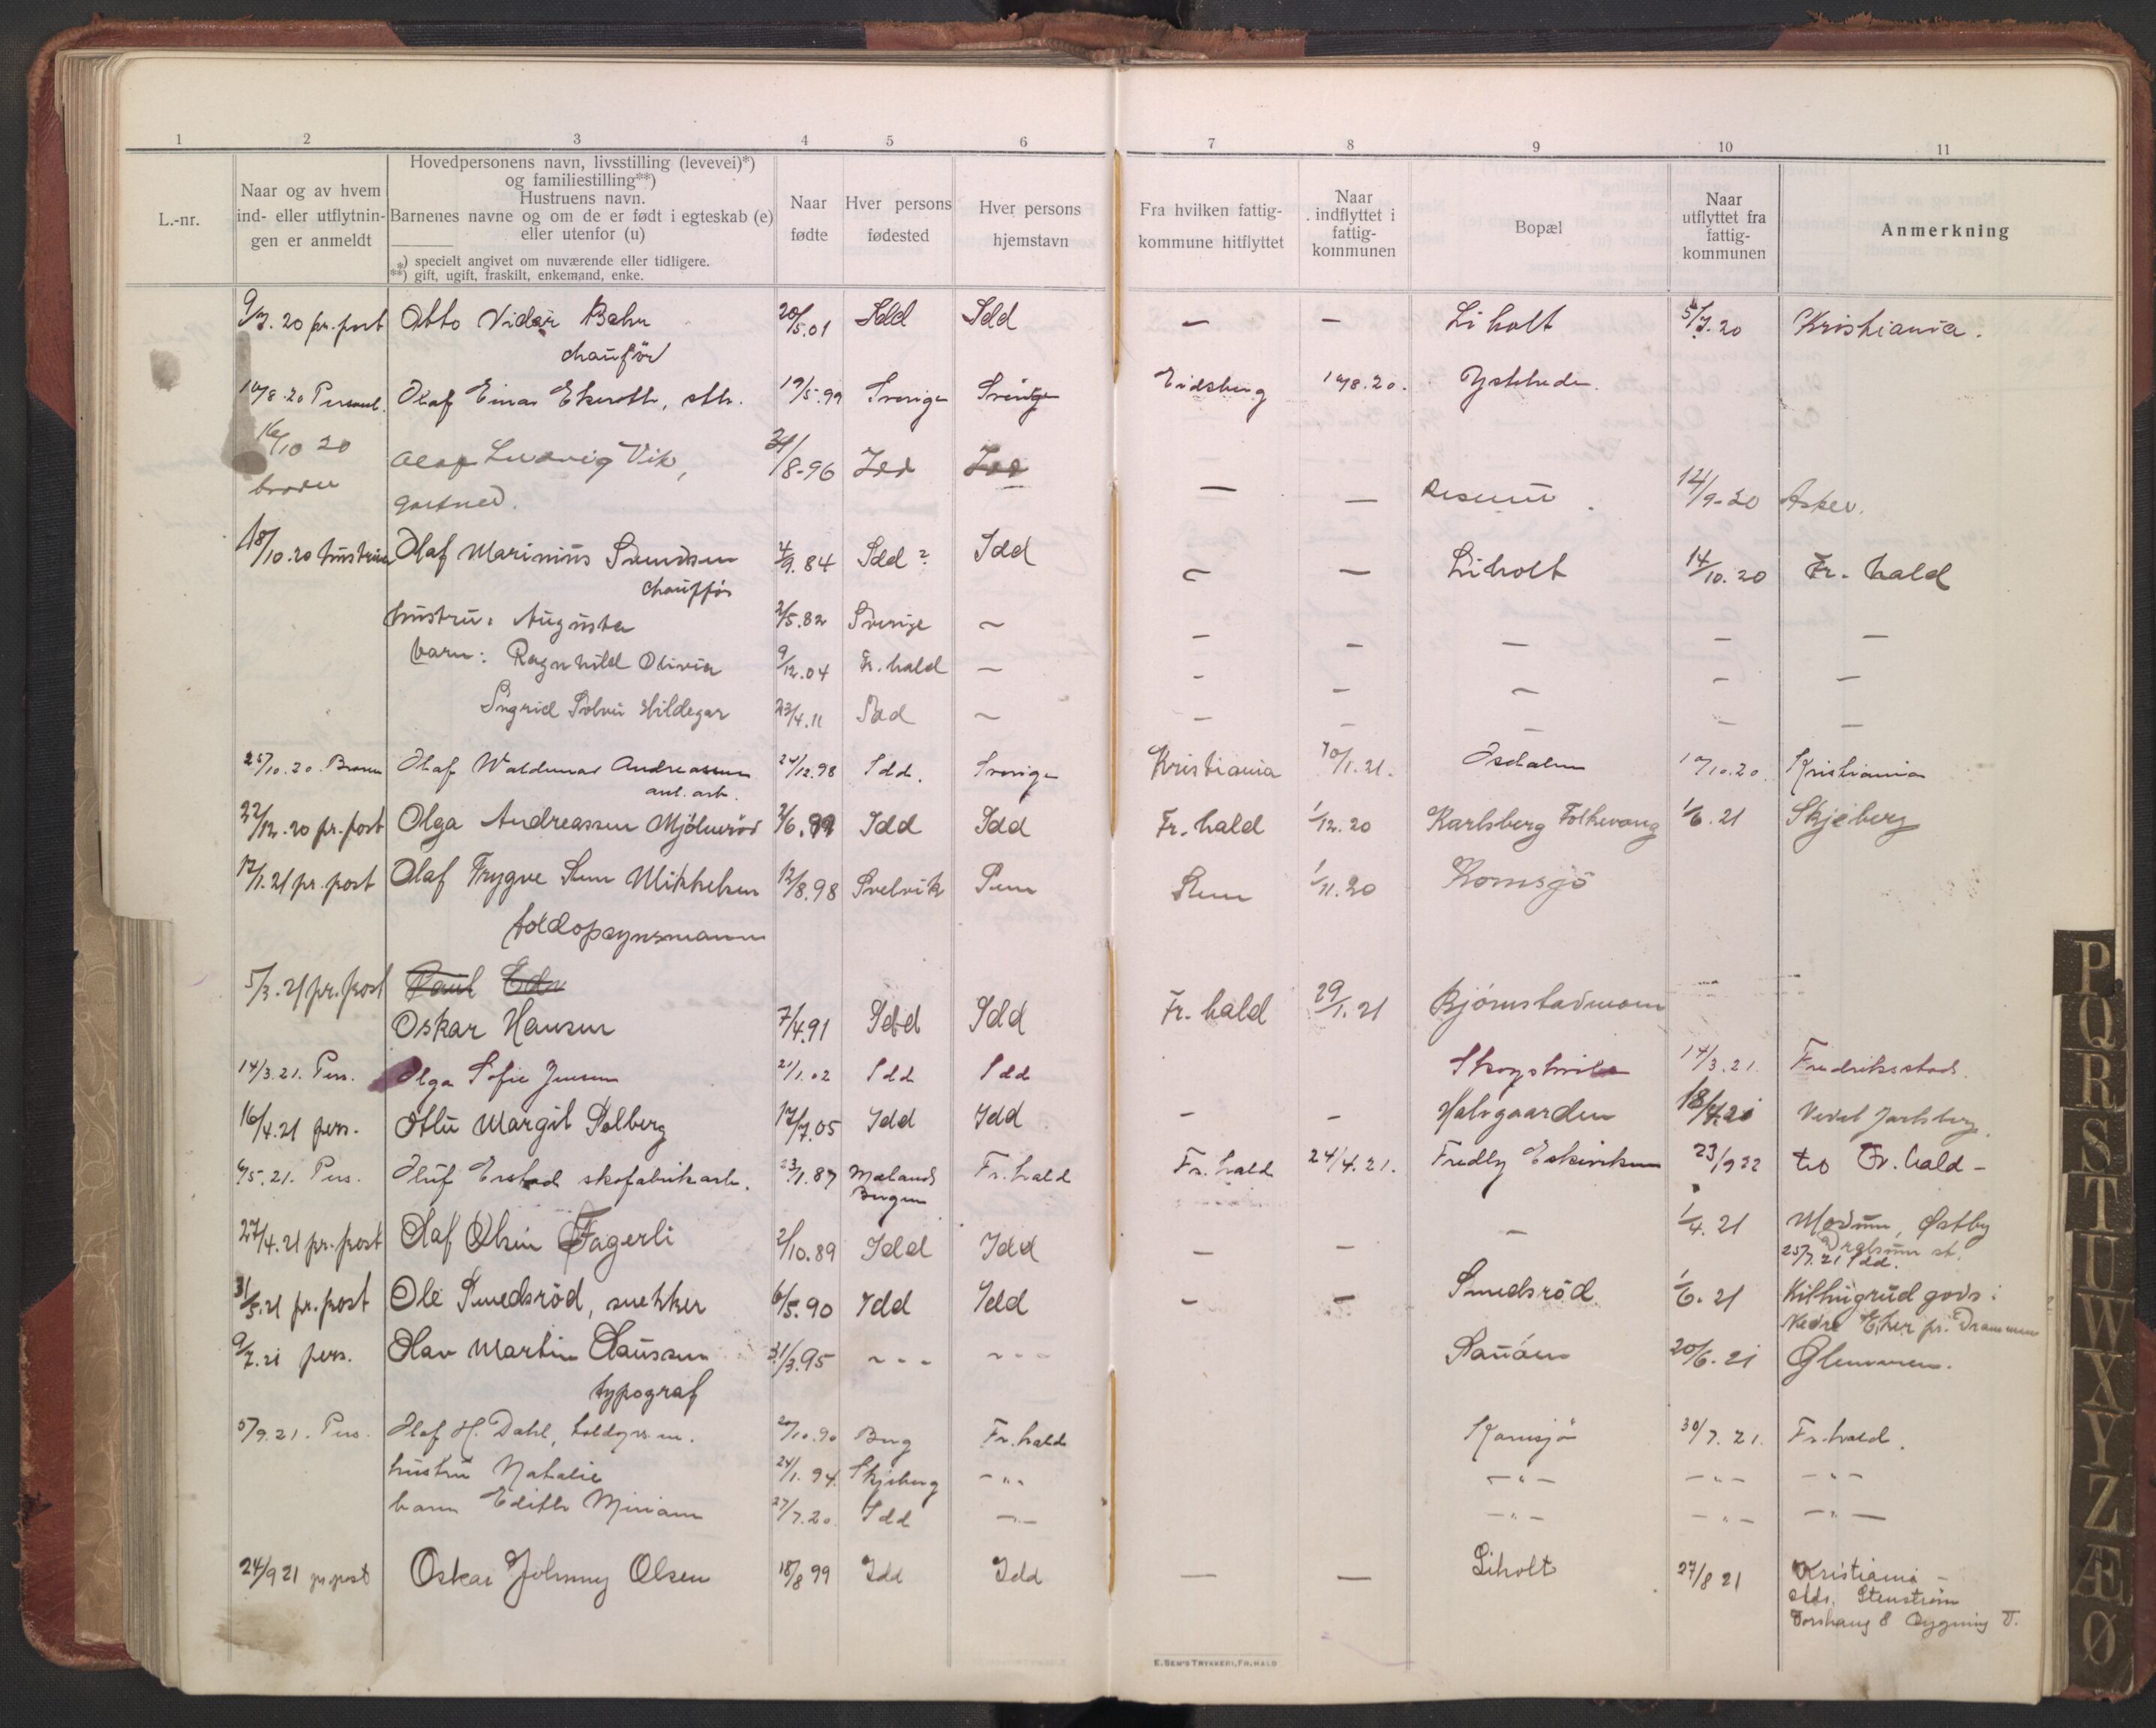 1 2 3 4 5 6 7 8 9 10 11
L.-nr.
Naar og av hvem
ind- eller utflytnin-
gen er anmeldt
Hovedpersonens navn, livsstilling (levevei)*)
og familiestilling**)
Hustruens navn.
Barnenes navne og om de er født i egteskab (e)
eller utenfor (u)
*) specielt angivet om nuværende eller tidligere.
**) gift, ugift, fraskilt, enkemand, enke.
Naar
fødte
Hver persons
fødested
Hver persons
hjemstavn
Fra hvilken fattig-
kommune hitflyttet
Naar
indflyttet i
fattig-
kommunen
Bopæl
Naar
utflyttet fra
fattig-
kommunen
Anmerkning
9/7. 20 pr. post Otto Vidar 20/5.01 Idd Idd — — Liholt 5/7.20 Kristiania.
chauför
Olaf Einar 19/5.99 Sverige Sverige Eidsberg
16/10 20 Olaf Ludvig Vik, 8-96 Idd Idd
— — 12/9-20 Asker.
18/10.20 hustru Olaf Marinius 84 Idd? Idd — — Liholt 14/10.20 Fr. hald
chauffør
hustru: Augusta 2/5.82 Sverige — — — — — —
barn: Ragnhild Olivia 9/12.04 Fr. hald — — — — — —
Ingrid Solvei Hildegar 23/4.11 Idd — — — — — —
25/10.20. Olaf Waldemar Andreassen 24/12.98 Idd. Sverige Kristiania 1.21. Kristiania
anl. arb.
22/12.20 pr. post Olga Andreassen Mjölneröd Idd Idd Fr. hald 1/12.20 Karlsberg Folkevang 1/6.21 Skjeberg
17/1.21 pr. post Olaf Trygve Mikkelsen 12/8.98 Svelvik 1/11.20 Kornsjö
toldopsynsmann
5/3.21 pr. post Paul
Oskar Hansen 7/4.91 Idd Idd Fr. hald 29/1.21
14/3.21. Pers. Olga Sofie Jensen 21/1.02 Idd Idd 14/3.21. Fredriksstad.
16/4.21 pers. Margit Solberg 17/7.05 Idd Idd — — Halvgaarden Vedel Jarlsberg.
5.21. Pers. Oluf skofabrikarb. 23/1.87 Fr. hald Fr. hald 24/4.21. 23/9 22 Fr. hald -
Bergen
27/4.21 pr. post Olaf Olsen Fagerli 2/10.89 Idd Idd — — — 1/4.21 Modum, Østby
st.
25/7.21 Idd.
31/5.21 pr. post Ole Smedsröd, snekker 6/5.90 Idd Idd — — Smedsröd 1/6.21 gods i
Nedre Eker pr. Drammen
9/7.21 pers. Olav Martin 31/3.95 20/6.21 Glemmen.
typograf
5/9.21. Pers. Olaf H. Dahl, 20/10.90 Berg Fr. hald Kornsjö 30/7.21. Fr. hald.
hustru Natalie 24/1.94. Skjeberg -"- -"- -"- -"-
barn Edith Miriam 27/7.20. Idd -"- -"- -"- -"-
24/9 21 pr. post Oskar Johnny Olsen 18/8 99 Idd Idd — — Liholt 27/8 21 Kristiania -
adr. Stenström
E. SEM'S TRYKKERI, FR.HALD
P
Q
R
S
T
U
W
X
Y
Z
Æ
Ø